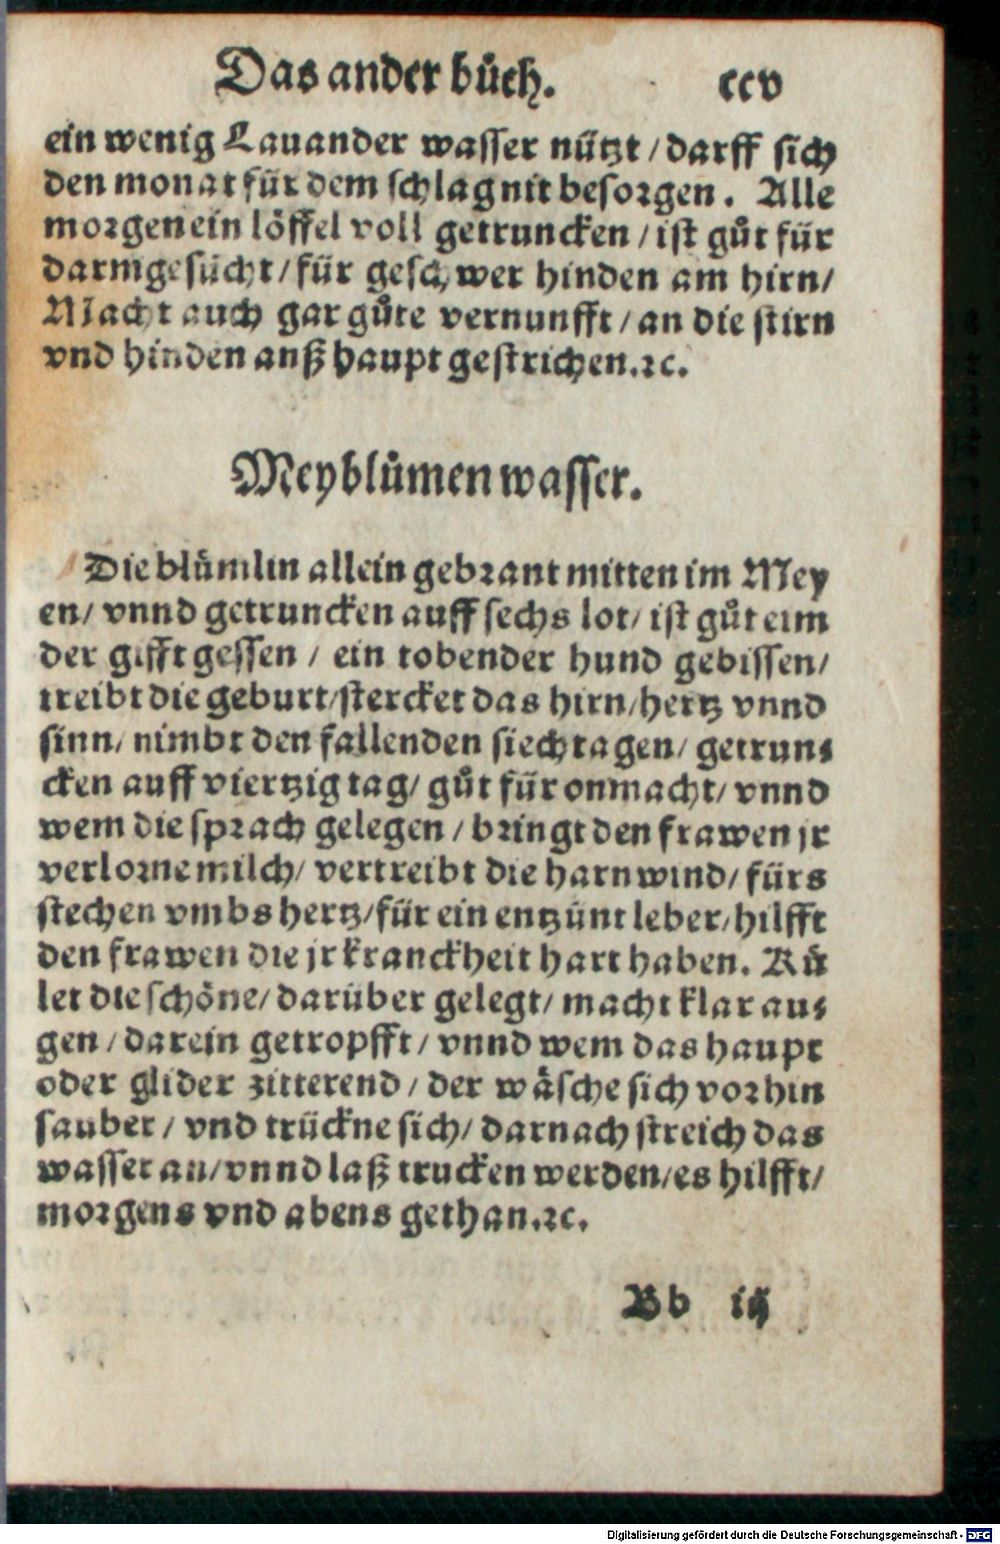 Das ander bůch. ccv
ein wenig Lauander wasser nützt / darff sich
den monat für dem schlag nit besorgen. Alle
morgen ein löffel voll getruncken / ist gůt für
darmgesücht / für geschwer hinden am hirn /
Macht auch gar gůte vernunfft / an die stirn
vnd hinden anß haupt gestrichen. ꝛc.
Meyblůmen wasser.
Die blůmlin allein gebrant mitten im Mey
en / vnnd getruncken auff sechs lot / ist gůt eim
der gifft gessen / ein tobender hund gebissen /
treibt die geburt / stercket das hirn / hertz vnnd
sinn / nimbt den fallenden siechtagen / getrun⸗
cken auff viertzig tag / gůt für onmacht / vnnd
wem die sprach gelegen / bringt den frawen jr
verlorne milch / vertreibt die harnwind / fürs
stechen vmbs hertz / für ein entzünt leber / hilfft
den frawen die jr kranckheit hart haben. Ků
let die schöne / darüber gelegt / macht klar au⸗
gen / darein getropfft / vnnd wem das haupt
oder glider zitterend / der wäsche sich vorhin
sauber / vnd trückne sich / darnach streich das
wasser an / vnnd laß trucken werden / es hilfft /
morgens vnd abens gethan. ꝛc.
Bb iij
Digitalisierung gefördert durch die Deutsche Forschungsgemeinschaft - DFG